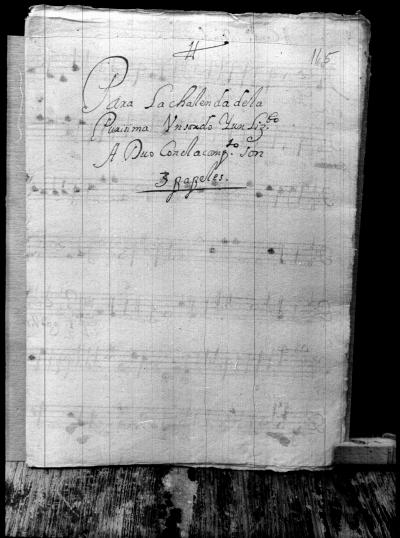 165
Para La chalenda de la
Purisima Un sordo Y un Liz.do
A Duo Con el acomp.to son
3 papeles.